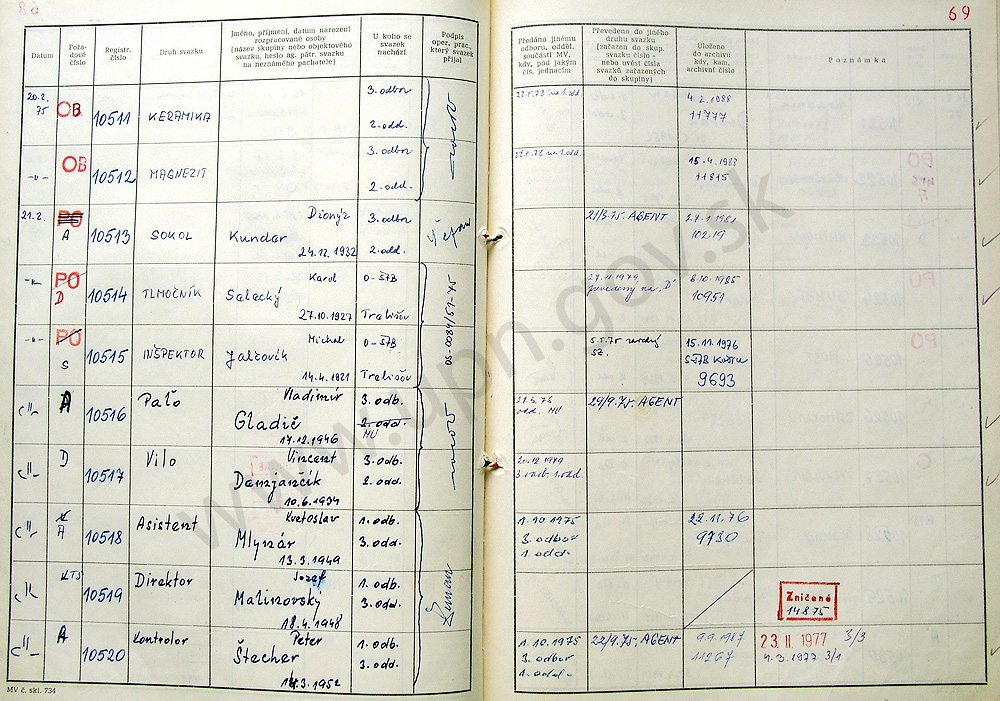 69
Datum
Pořa-
dové
číslo
Registr.
číslo
Druh svazku
Jméno, příjmení, datum narození
rozpracované osoby
(název skupiny nebo objektového
svazku, heslo ag. pátr. svazku
na neznámého pachatele)
U koho se
svazek
nachází
Podpis
oper. prac.,
který svazek
přijal
Předáno jinému
odboru, odděl.
součásti MV,
kdy, pod jakým
čís. jednacím
Převedeno do jiného
druhu svazku
(zařazen do skup.
svazku číslo -
nebo uvést čísla
svazků zařazených
do skupiny)
Uloženo
do archivu
kdy, kam,
archivní číslo
Poznámka
20.2.
75
OB
10511
KERAMIKA
3. odbor
2. odd.
4.2.1988
11777
-"-
OB
10512
MAGNEZIT
3. odbor
2. odd.
15.4.1988
11815
21.2.
PO
A
10513
SOKOL
Dionýz
Kundar
24.12.1932
3. odbor
2. odd.
21/3.75. AGENT
10219
-"-
PO
D
10514
TLMOČNÍK
Karol
Salacký
27.10.1927
O-ŠTB
Trebišov
27.11.1979
prevedený na "D"
8.10.1985
10951
-"-
PO
S
10515
INŠPEKTOR
Michal
Jalčovík
14.4.1921
O-ŠTB
Trebišov
OS-0084/51-75
15.11.1976
9693
-"-
A
10516
Paľo
Vladimír
Gladič
17.12.1946
3. odb.
2. odd.
MV
odd. MV
29/9.75. AGENT
-"-
D
10517
Vilo
Vincent
Damjančík
10.6.1934
3. odb.
2. odd.
20.12.1979
3. odb. 1. odd
-"-
A
10518
Asistent
Kvetoslav
Mlynár
13.3.1949
1. odb.
3. odd.
1.10.1975
3. odbor
1. odd.
22.11.76
9730
-"-
KTS
10519
Direktor
Jozef
Malinovský
18.4.1948
1. odb.
3. odd.
Zničené
14.8.75
-"-
A
10520
Kontrolor
Peter
Štecher
14.3.1952
1. odb.
3. odd.
1.10.1975
3. odbor
1. odd.
22/9.75. AGENT
9.9.1987
11267
23.II.1977 3/3
4.3.1977 3/1
MV č. skl. 734
www.upn.gov.sk